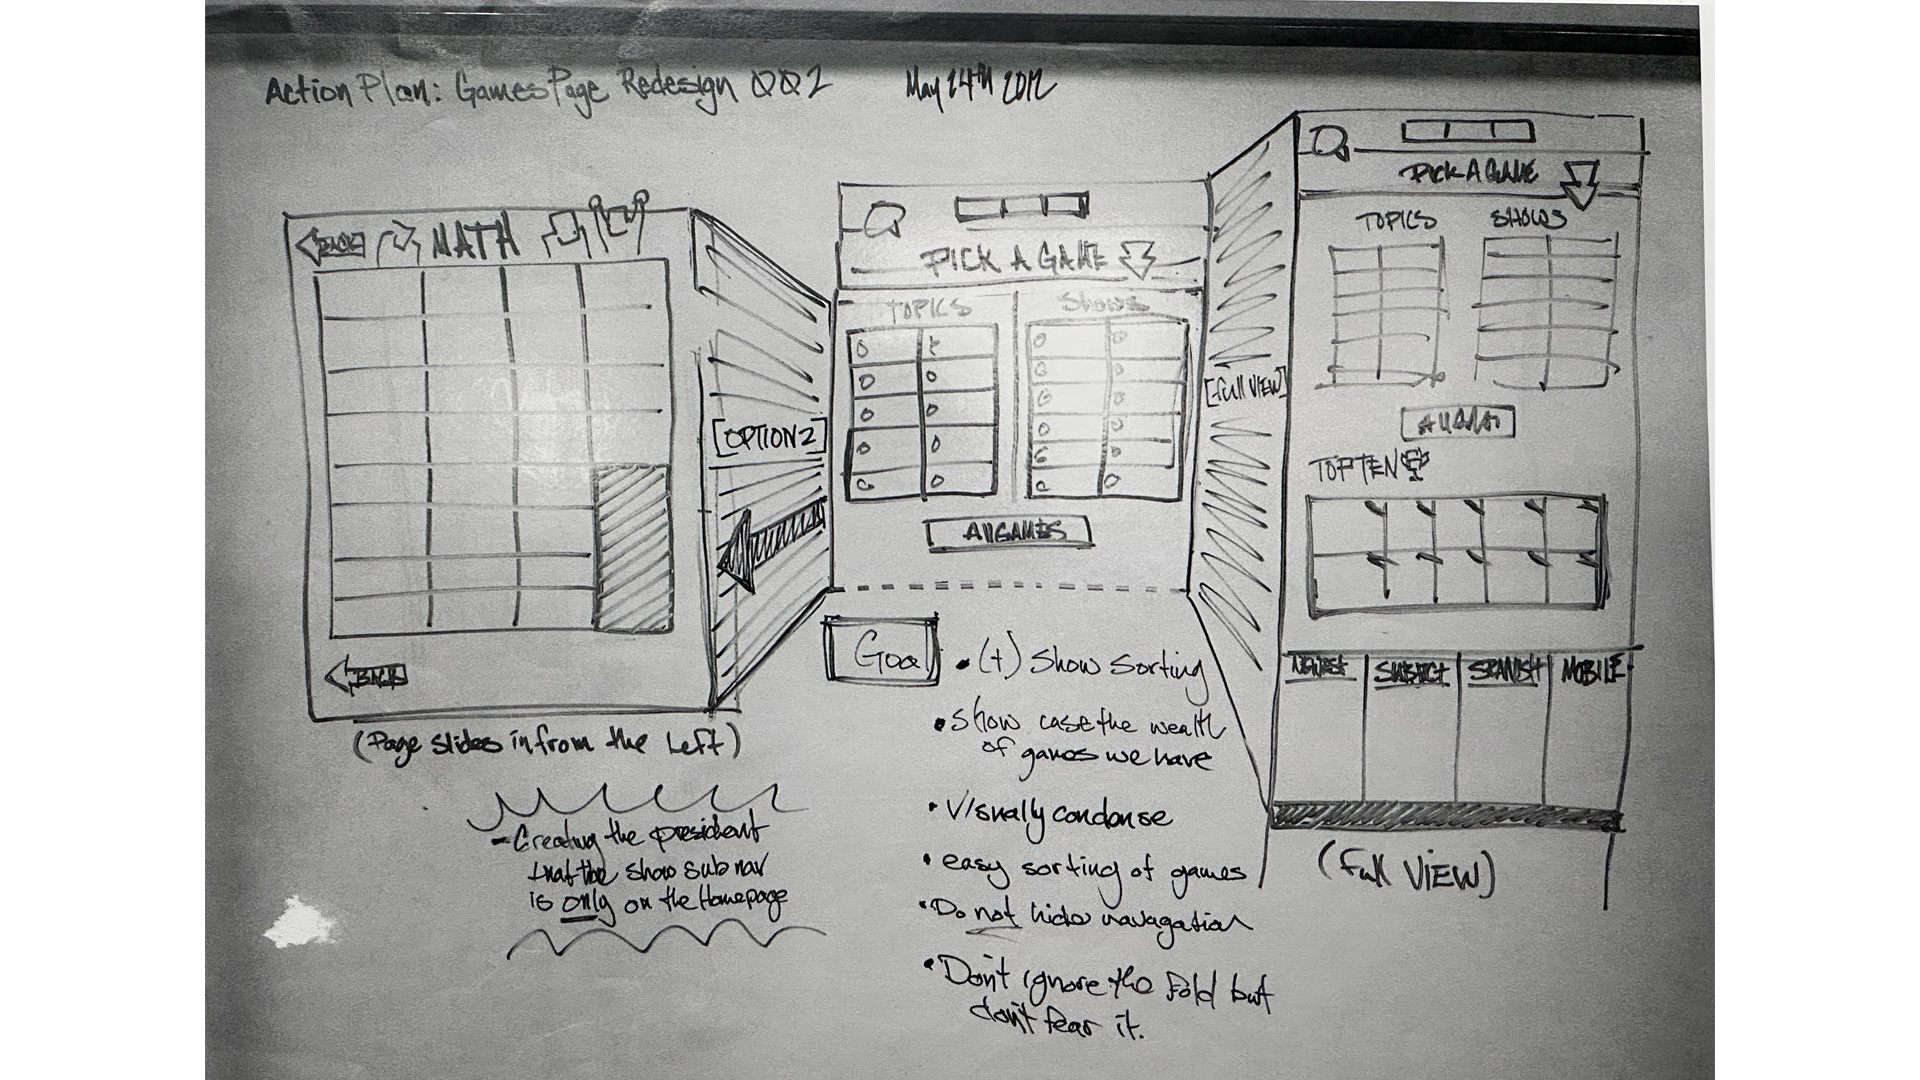 Action Plan: Games Page Redesign QQ2 May 24th 2012
BACK MATH
BACK
(Page slides in from the Left)
- Creating the president
that the show sub nav
is only on the Homepage
[OPTION 2]
PICK A GAME
TOPICS Shows
All GAMES
Goal
• (+) Show Sorting
• Show case the wealth
of games we have
• Visually condense
• easy sorting of games
• Do not hide navagation
• Don't ignore the Fold but
don't fear it.
[Full VIEW]
PICK A GAME
TOPICS SHOWS
TOP TEN
NEWEST SUBJECT SPANISH MOBILE
(Full VIEW)